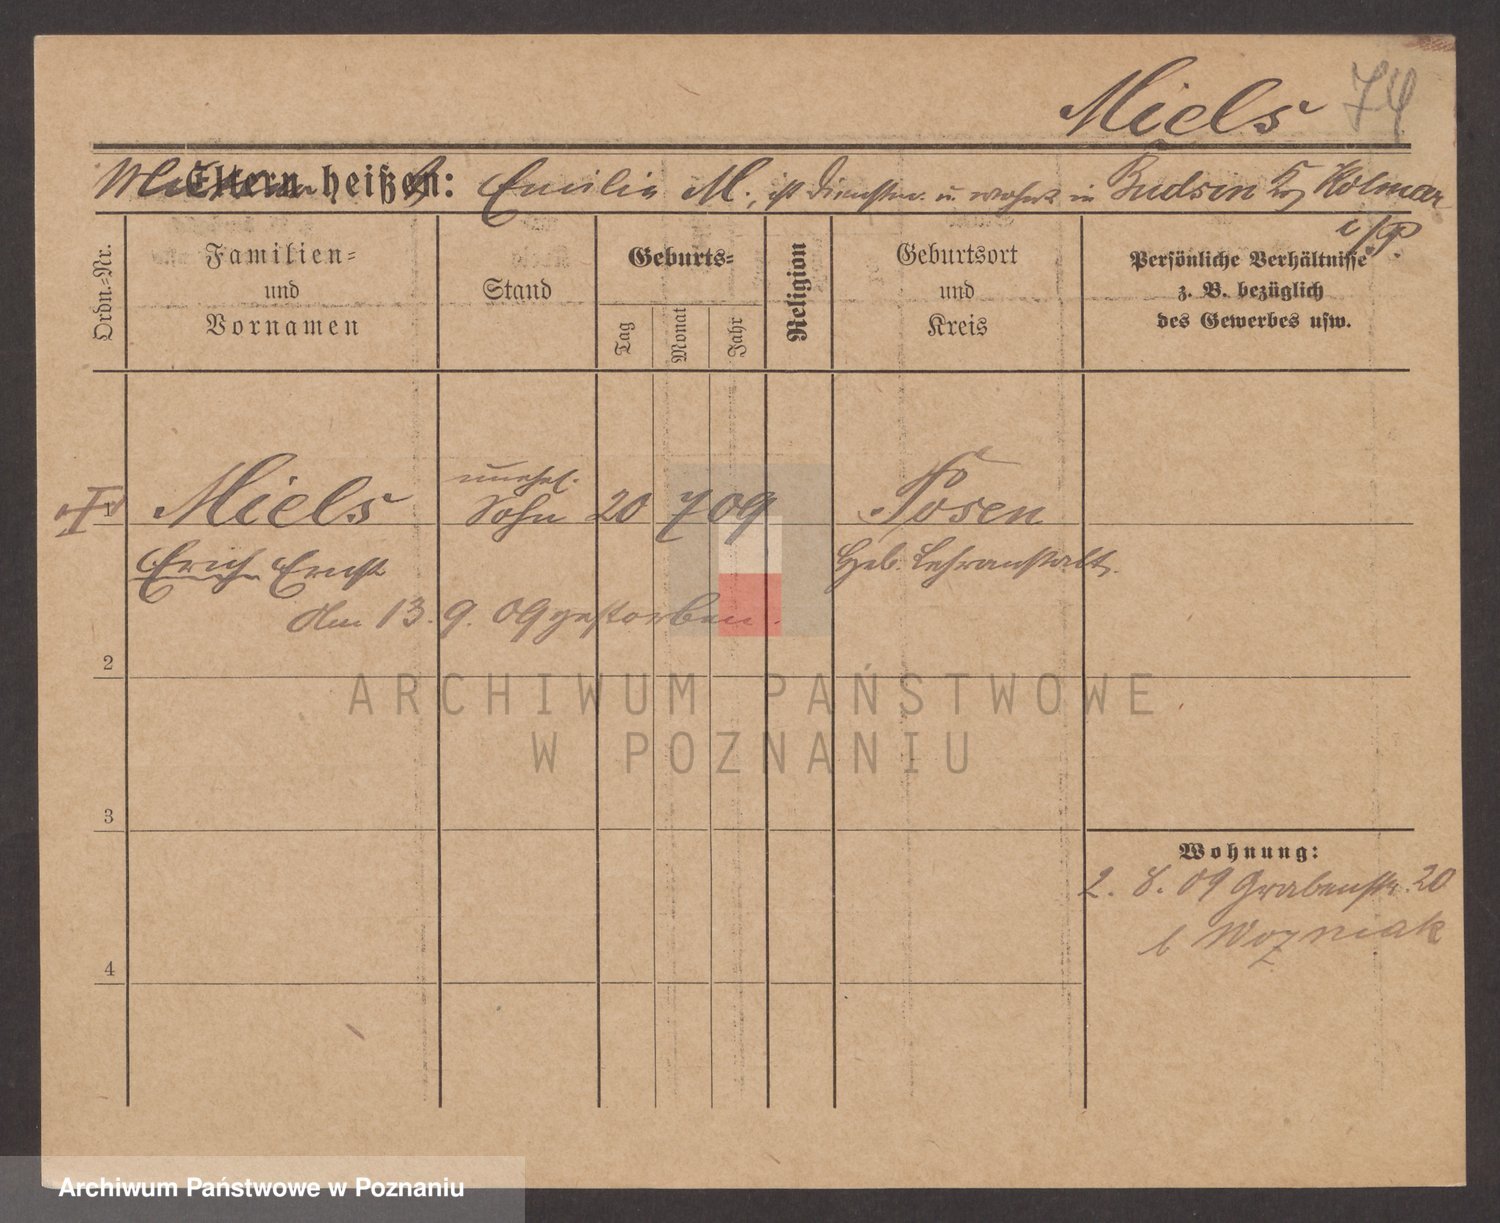 Miels 74
Mutter heißt: Emilie M., ist Dienstm. u. wohnt in Budsin Krs Kolmar
i/P.
Ordn.-Nr.
Familien-
und
Vornamen
Stand
Geburts-
Tag
Monat
Jahr
Religion
Geburtsort
und
Kreis
Persönliche Verhältnisse
z. B. bezüglich
des Gewerbes usw.
unehel.
1 Miels Sohn 20 7 09 Posen
Erich Ernst Heb. Lehranstalt.
Am 13. 9. 09 gestorben.
2
ARCHIWUM PAŃSTWOWE
W POZNANIU
3
Wohnung:
2. 8. 09 Grabenstr. 20
b Wozniak
4
Archiwum Państwowe w Poznaniu